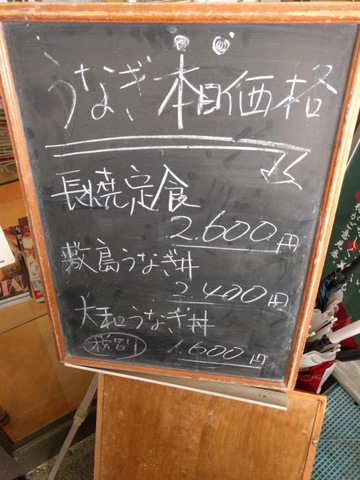 うなぎ本日価格
長焼定食
2.600円
敷島うなぎ丼
2.400円
大和うなぎ丼
税込り 1.600円